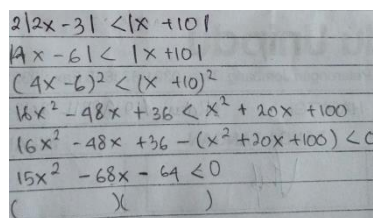 2|2x - 3| < |x + 10|
|4x - 6| < |x + 10|
(4x - 6)² < (x + 10)²
16x² - 48x + 36 < x² + 20x + 100
16x² - 48x + 36 - (x² + 20x + 100) < 0
15x² - 68x - 64 < 0
( )( )